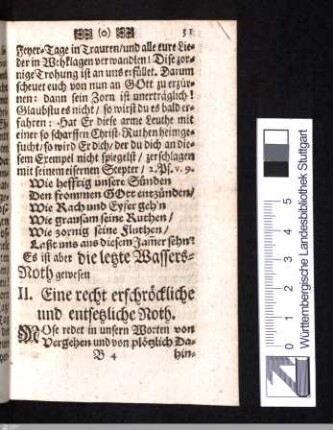 (o) 31
Feyer-Tage in Trauren/und alle eure Lie-
der in Wehklagen verwandlen! Dise zor-
nige Trohung ist an uns erfüllet. Darum
scheuet euch von nun an GOtt zu erzür-
nen: dann sein Zorn ist unerträglich!
Glaubstu es nicht/ so wirst du es bald er-
fahren: Hat Er diese arme Leuthe mit
einer so scharffen Christ-Ruthen heimge-
sucht/ so wird Er dich/ der du dich an die-
sem Exempel nicht spiegelst/ zerschlagen
mit seinem eisernen Scepter/ 2. Ps. v. 9.
Wie hefftig unsere Sünden
Den frommen GOtt entzünden/
Wie Rach und Eyfer geh'n
Wie grausam seine Ruthen/
Wie zornig seine Fluthen/
Laßt uns aus diesem Jam̃er sehn't
Es ist aber die letzte Wassers-
Noth gewesen
II. Eine recht erschröckliche
und entsetzliche Noth.
MOse redet in unsern Worten von
Vergehen und von plötzlich Da-
B 4 hin-
0 1 2 3 4 5
Württembergische Landesbibliothek Stuttgart